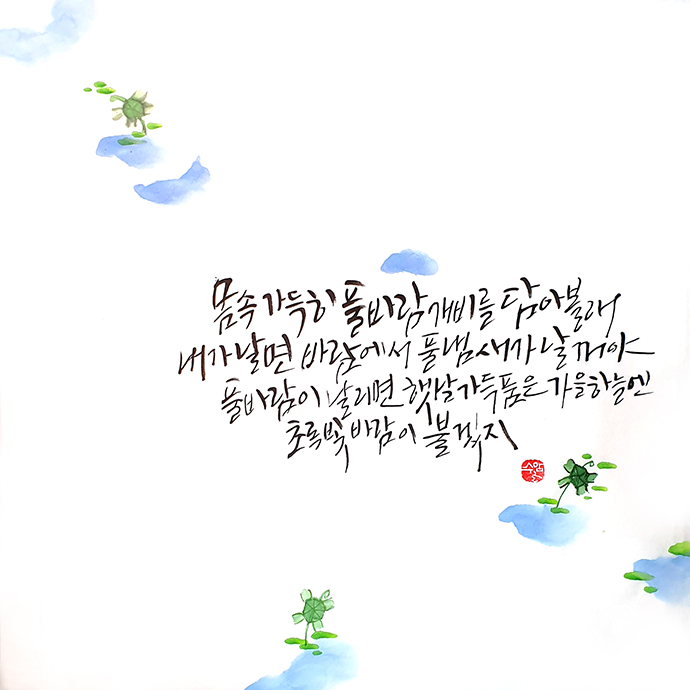 몸속 가득히 풀바람개비를 담아볼래
내가 날면 바람에서 풀냄새가 날꺼야
풀바람이 날리면 햇살가득품은 가을하늘엔
초록빛 바람이 불겠지